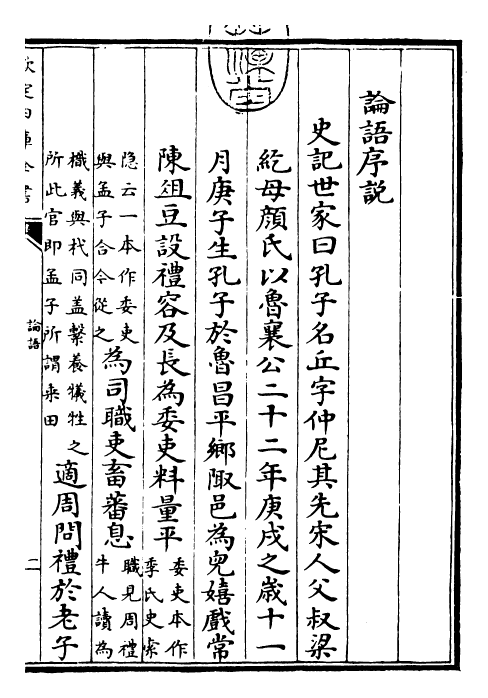 論語序説
史記世家曰孔子名丘字仲尼其先宋人父叔梁
紇母顔氏以魯襄公二十二年庚戌之歳十一
月庚子生孔子於魯昌平鄉陬邑為兒嬉戲常
陳俎豆設禮容及長為委吏料量平委吏本作季氏史索
隐云一本作委吏與孟子合今從之為司職吏畜蕃息職見周禮牛人讀為
樴義與杙同盖繫養犧牲之所此官即孟子所謂乗田適周問禮於老子
欽定四庫全書
論語
二